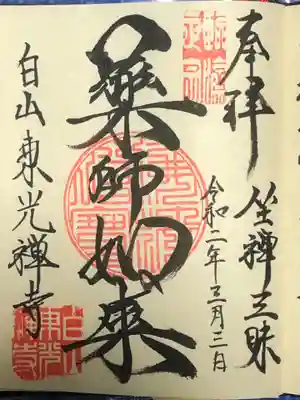 奉拝 坐禅三昧
令和二年三月三日
薬師如来
白山東光禅寺